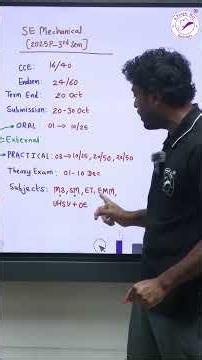 SE Mechanical
[2025P-3rd Sem]
CCE: 16/40
Endsem: 24/60
Term End: 20 Oct
Submission: 20-30 Oct
→ ORAL 01 → 10/25
→ External
→ PRACTICAL: 03→10/25, 20/50, 20/50
Theory Exam: 01-10 Dec
Subjects: M3, SM, ET, EMM,
UHSV+OE